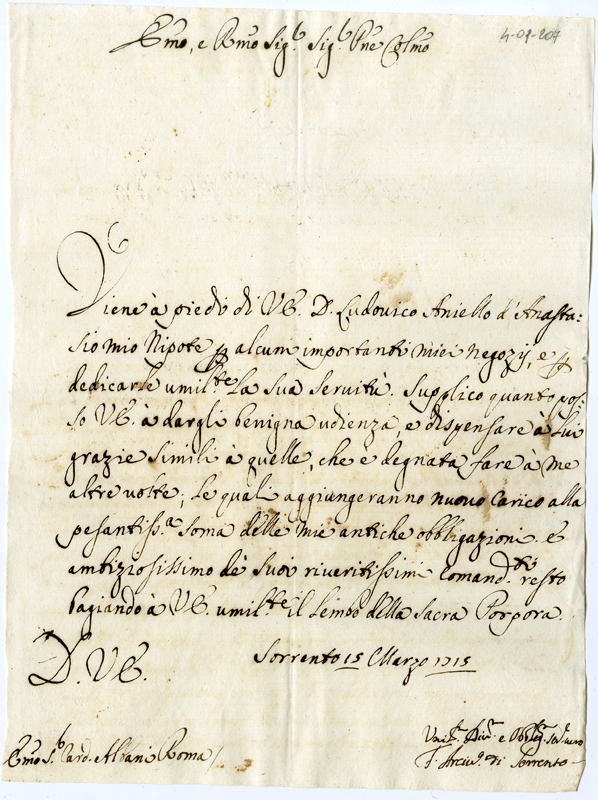 Emo, e Rmo Sig.r Sig.r Pne Colmo
4-09-207
Viene à piedi di VE. D. Ludovico Aniello d'Anasta=
sio mio Nipote p alcuni importanti miei negozij, e p
dedicarle umil.te la sua servitù. Supplico quanto pos=
so VE. à dargli benigna udienza, e dispensare à lui
grazie simili à quelle, che e degnata fare à me
altre volte; le quali aggiungeranno nuovo carico alla
pesantiss.a soma delle mie antiche obbligazioni. e
ambiziosissimo de suoi riveritissimi Comand.ti resto
bagiando à VE. umil.te il lembo della sacra Porpora.
Sorrento 15 Marzo 1715
D. VE.
Umil. Div. e Obblig. Ser. vero
F. Arciv. di Sorrento
Emo S.r Card. Albani Roma